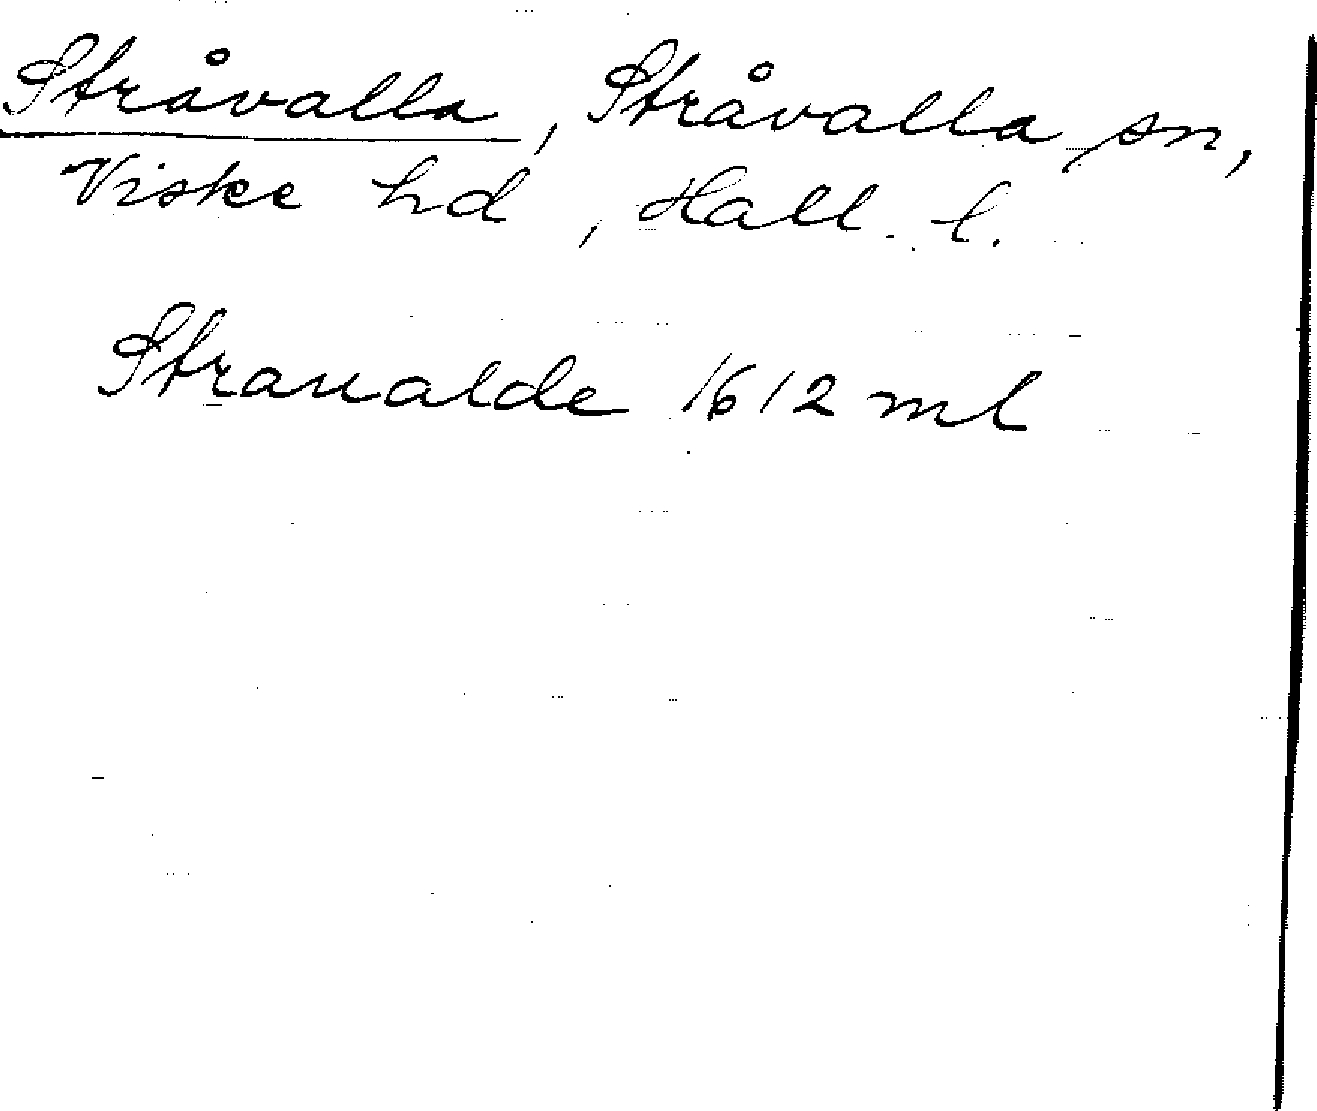 Stråvalla, Stråvalla sn,
Viske hd, Hall. l.
Straualde 1612 ml